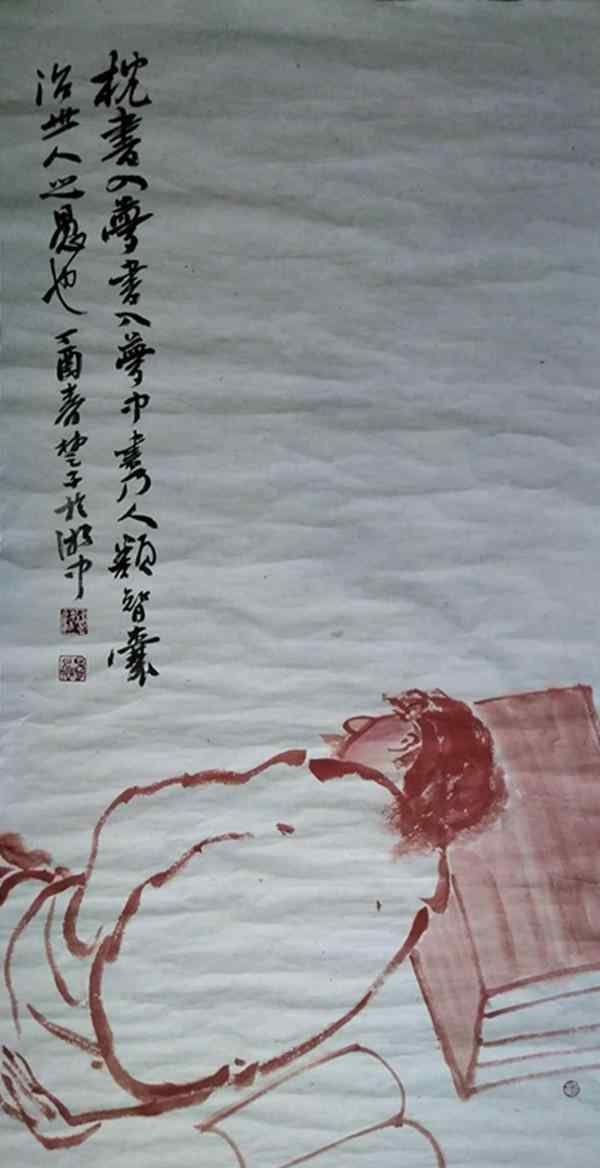 枕书入夢書入夢中書乃人類智囊
治世人之愚也丁酉春楚子於湖中